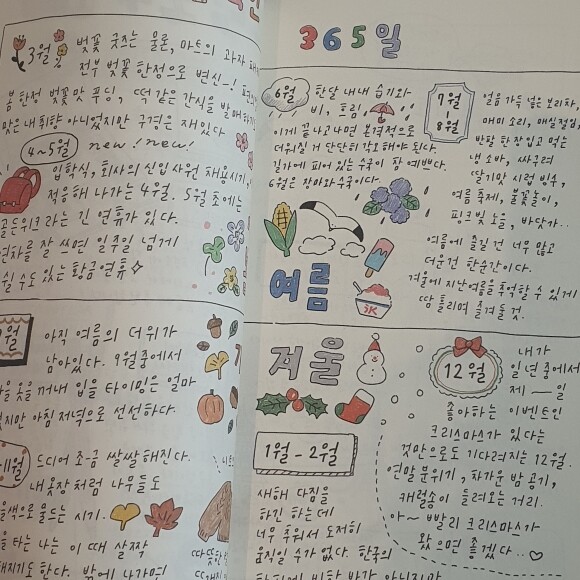 365일
3월
벚꽃 굿즈는 물론, 마트의 과자
전부 벚꽃 한정으로 변신~!
봄 한정 벚꽃맛 푸딩, 떡 같은 간식을 발매하기
맛은 내 취향 아니었지만 구경은 재밌다
4~5월
new! new!
입학식, 회사의 신입 사원 채용시기,
적응해 나가는 4월. 5월 초에는
골든위크라는 긴 연휴가 있다.
연차를 잘 쓰면 일주일 넘게
쉴 수도 있는 황금연휴
6월
한달 내내 습기와
비, 흐림
이게 끝나고나면 본격적으로
더워질 거 단단히 각오해야 된다.
길가에 피어 있는 수국이 참 예쁘다.
6월은 장마와 수국이다.
7월
-
8월
얼음 가득 넣은 보리차,
매미 소리, 매실절임,
반팔 한 장 입고 먹는
냉 소바, 싸구려
딸기맛 시럽 빙수,
여름 축제, 불꽃놀이,
핑크빛 노을, 바닷가..
여름에 즐길 건 너무 많고
더운건 한순간이다.
겨울에 지난여름을 추억할 수 있게
땀 흘리며 즐겨둘 것.
여름
월
아직 여름의 더위가
남아있다. 9월 중에서
옷을 꺼내 입을 타이밍은 얼마
없지만 아침 저녁으로 선선하다.
11월
드디어 조금 쌀쌀해진다.
내 옷장처럼 나무들도
색으로 물드는 시기.
타는 나는 이 때 살짝
해지기도 한다. 밖에 나가면
겨울
12월
내가
일 년 중에서
제 — 일
좋아하는 이벤트인
크리스마스가 있다는
것만으로도 기다려지는 12월.
연말 분위기, 차가운 밤 공기,
캐럴송이 들려오는 거리.
아~ 빨리 크리스마스가
왔으면 좋겠다..♡
1월 - 2월
새해 다짐을
하긴 하는데
너무 추워서 도저히
움직일 수가 없다. 한국의